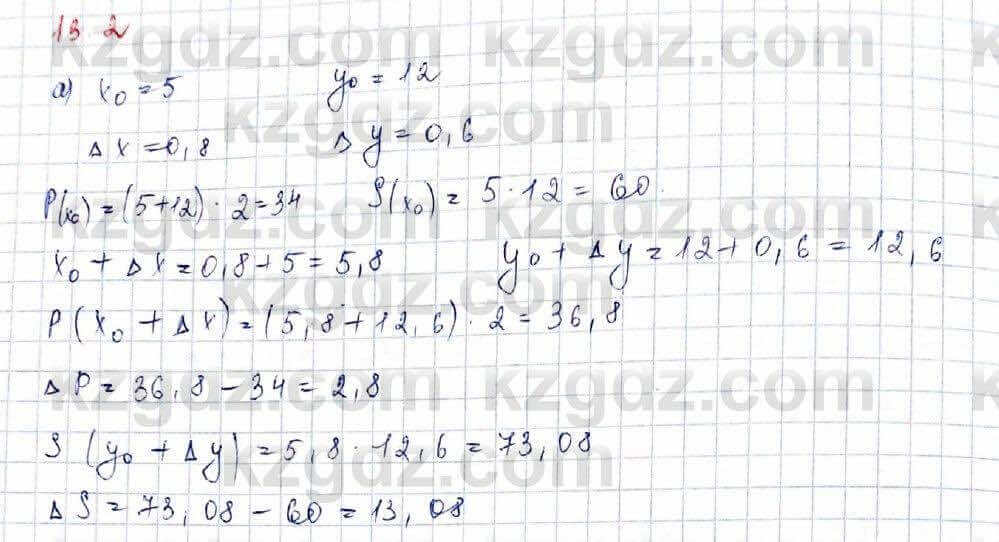 13 2
а) x₀ = 5 y₀ = 12
Δ x = 0,8 Δ y = 0,6
P(x₀) = (5+12) · 2 = 34 S(x₀) = 5 · 12 = 60
x₀ + Δ x = 0,8 + 5 = 5,8 y₀ + Δ y = 12 + 0,6 = 12,6
P (x₀ + Δ x) = (5,8 + 12,6) · 2 = 36,8
Δ P = 36,8 - 34 = 2,8
S (y₀ + Δ y) = 5,8 · 12,6 = 73,08
Δ S = 73,08 - 60 = 13,08
kzgdz.com kzgdz.com
kzgdz.com
kzgdz.com kzgdz.com
kzgdz.com
kzgdz.com kzgdz.com
kzgdz.com